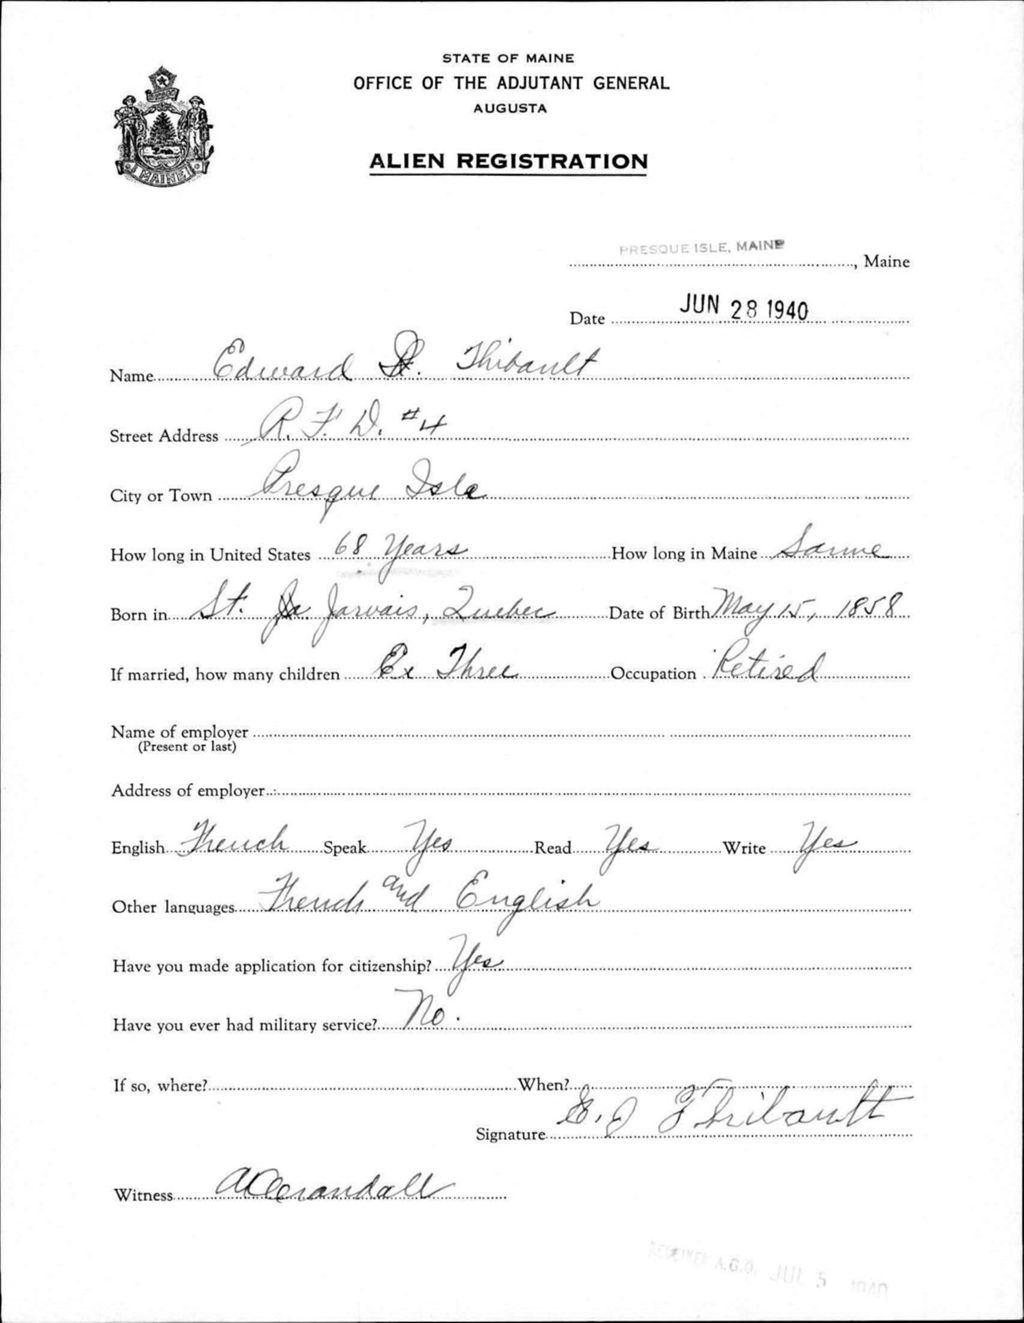 STATE OF MAINE
OFFICE OF THE ADJUTANT GENERAL
AUGUSTA
ALIEN REGISTRATION
MAINE
PRESQUE ISLE, MAINE
, Maine
Date JUN 28 1940
Name Edward Thibault
Street Address R. F. D. #4
City or Town Presque Isle
How long in United States 68 Years How long in Maine Same
Born in St. Jarvais, Quebec Date of Birth May 15, 1858
If married, how many children Three Occupation Retired
Name of employer
(Present or last)
Address of employer
English French Speak Yes Read Yes Write Yes
Other languages French and English
Have you made application for citizenship? Yes
Have you ever had military service? No.
If so, where? When?
Signature E. J Thibault
Witness Crandall
RECEIVED A.G.O. JUL 5 1940